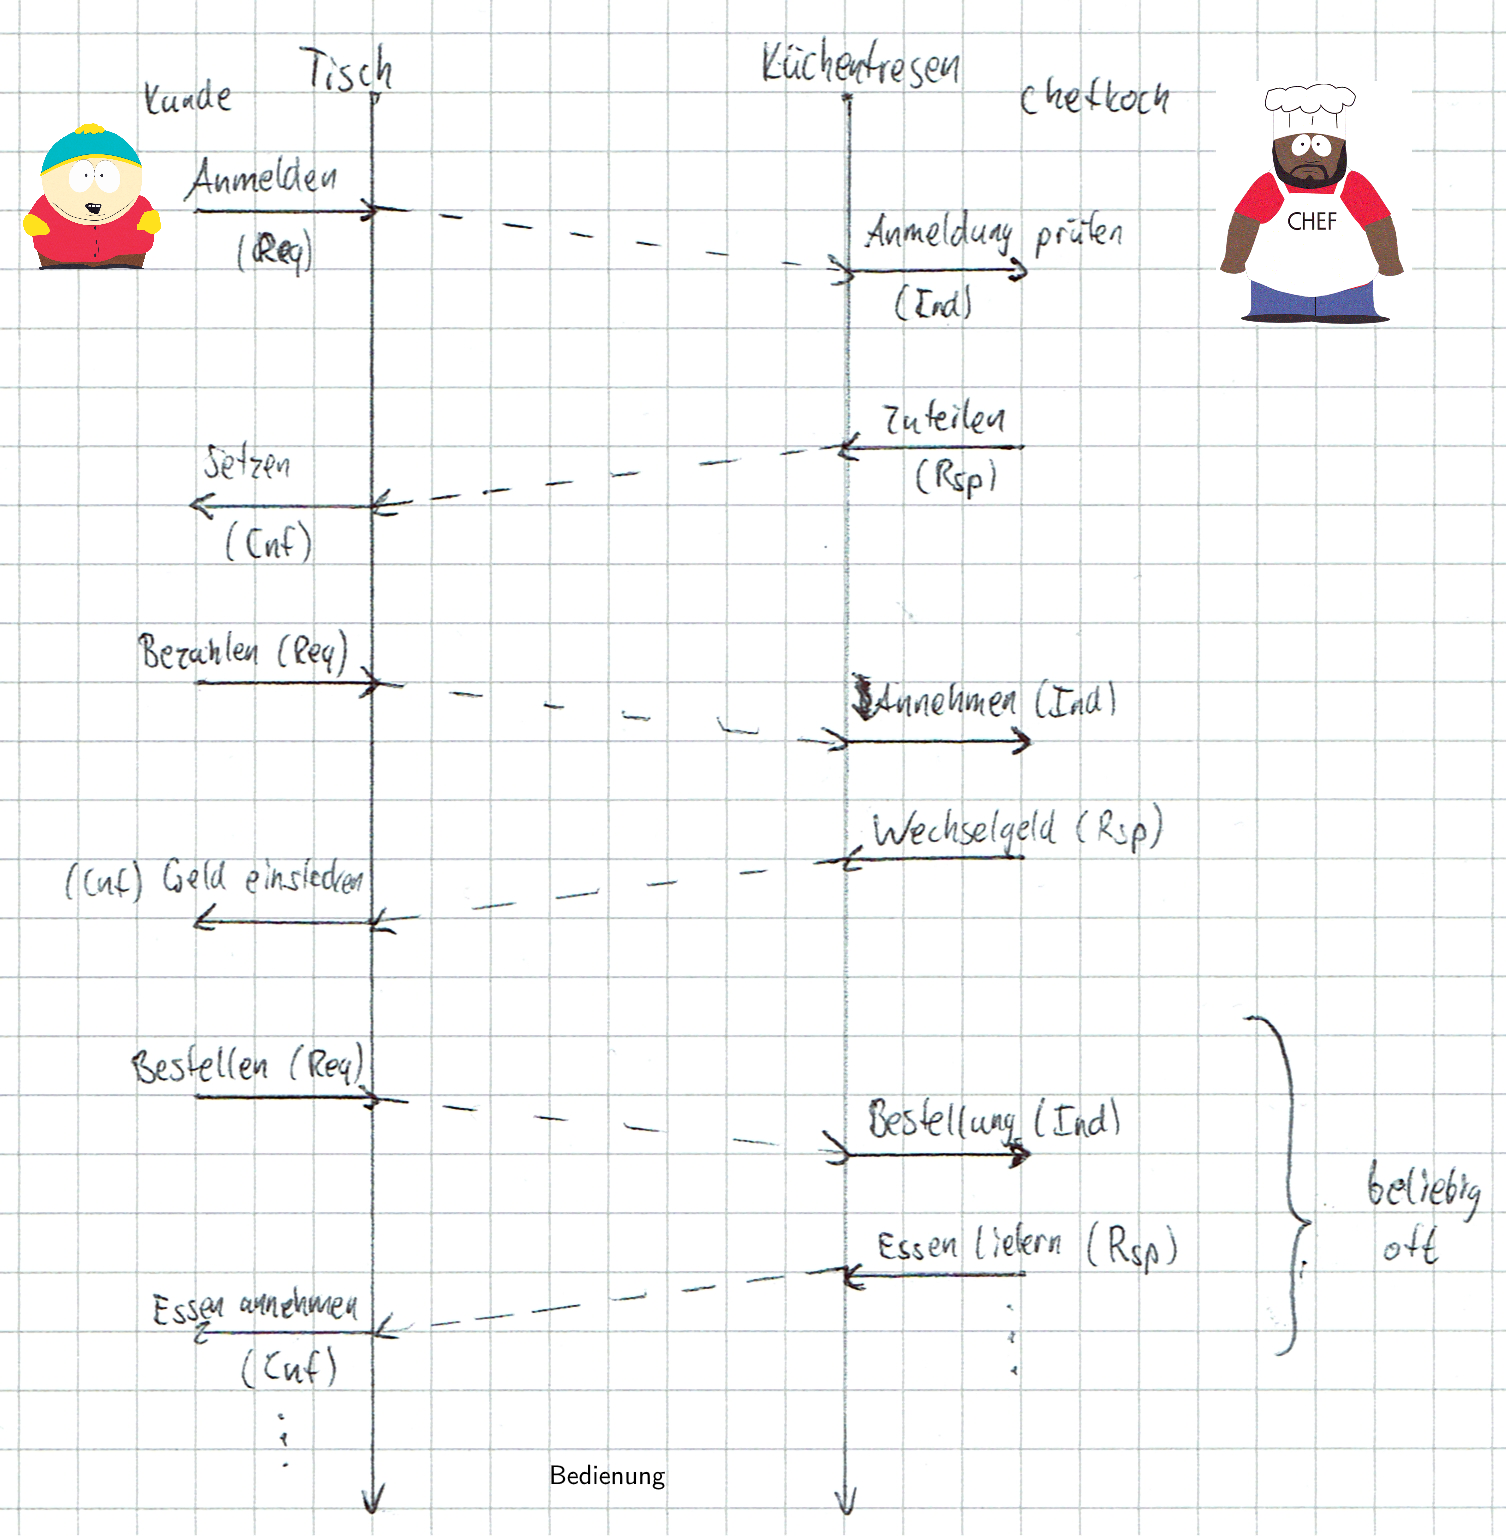 Kunde
Tisch
Küchentresen
Chefkoch
Anmelden
(Req)
Anmeldung prüfen
(Ind)
CHEF
Zuteilen
(Rsp)
Setzen
(Cnf)
Bezahlen (Req)
Annehmen (Ind)
Wechselgeld (Rsp)
(Cnf) Geld einstecken
Bestellen (Req)
Bestellung (Ind)
beliebig
oft
Essen liefern (Rsp)
Essen annehmen
(Cnf)
Bedienung